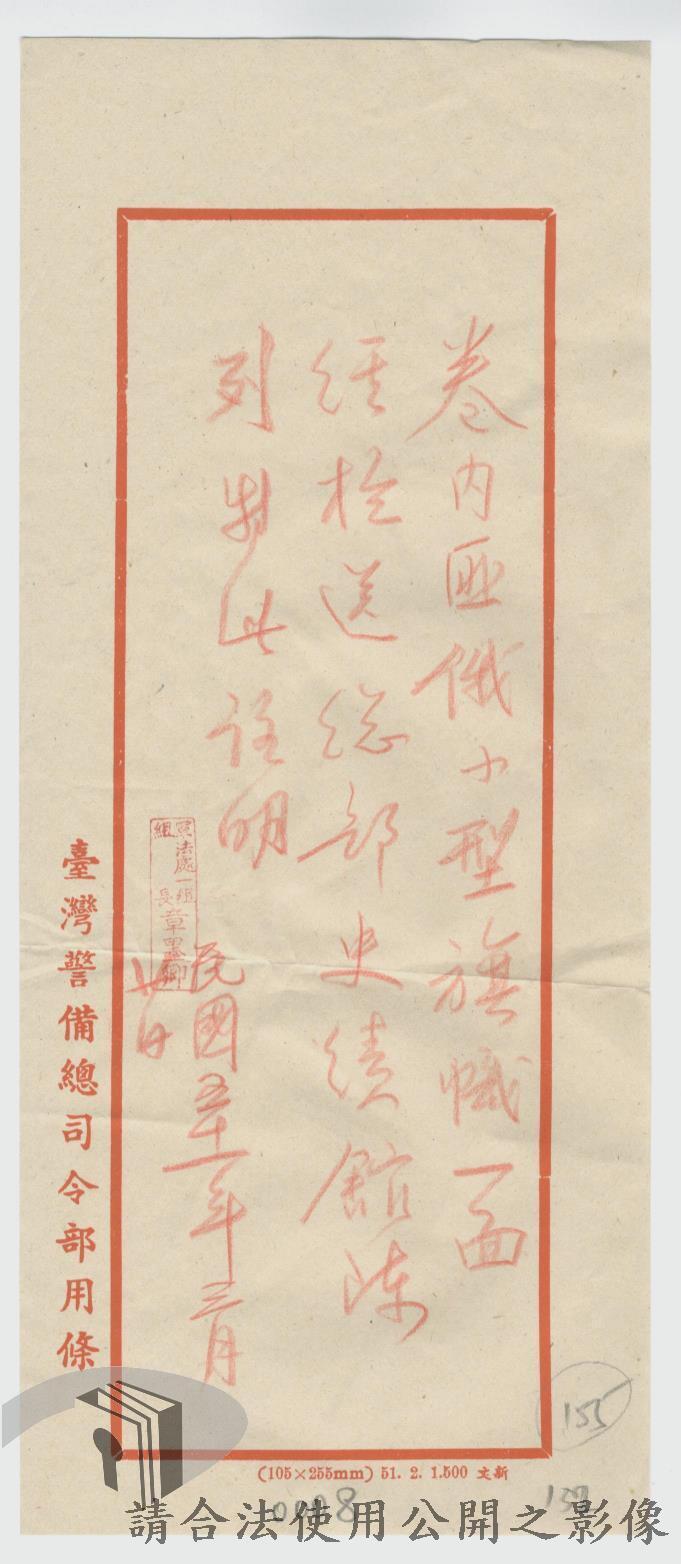 卷內匪俄小型旗幟一面
經檢送總部史績館陳
列特此註明
軍法處一組
組長章墨卿
民國五十一年三月
廿日
臺灣警備總司令部用條
(105×255mm) 51. 2. 1.500 文新
155
132
請合法使用公開之影像